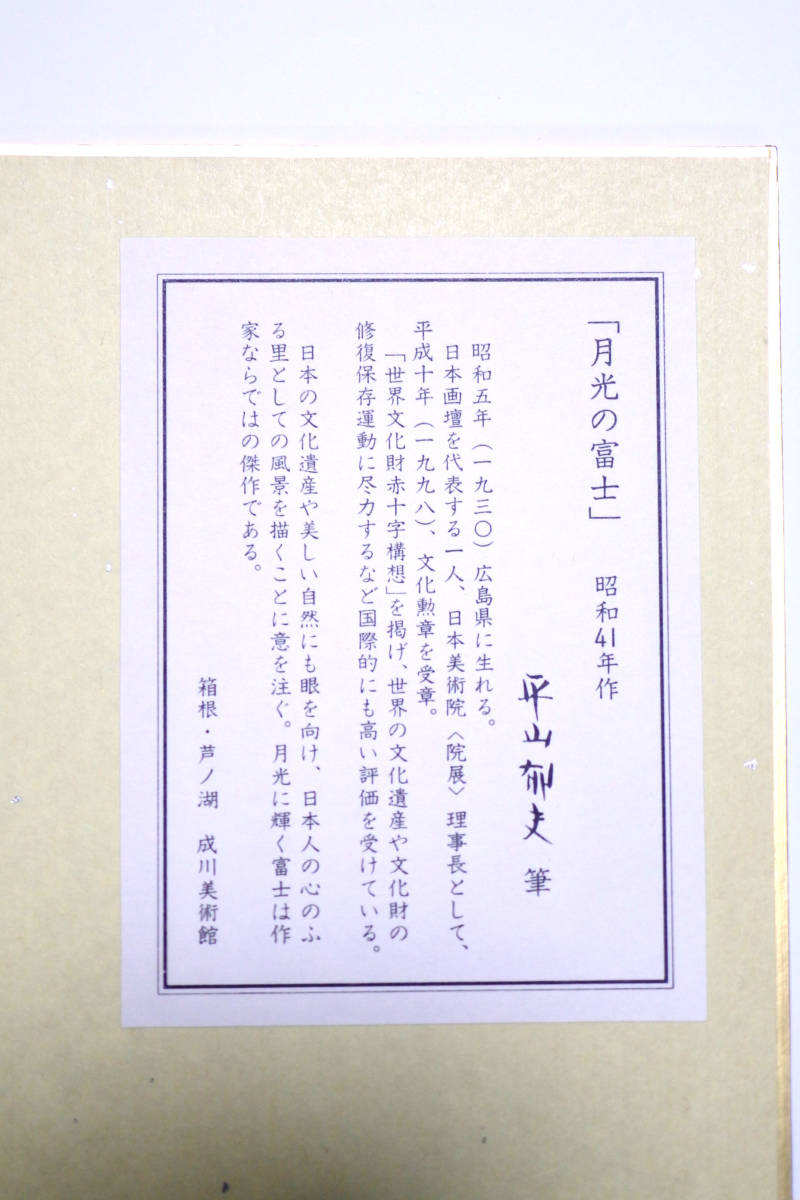 「月光の富士」　昭和41年作
平山郁夫 筆
昭和五年（一九三〇）広島県に生れる。
日本画壇を代表する一人、日本美術院〈院展〉理事長として、
平成十年（一九九八）、文化勲章を受章。
「世界文化財赤十字構想」を掲げ、世界の文化遺産や文化財の
修復保存運動に尽力するなど国際的にも高い評価を受けている。
日本の文化遺産や美しい自然にも眼を向け、日本人の心のふ
る里としての風景を描くことに意を注ぐ。月光に輝く富士は作
家ならではの傑作である。
箱根・芦ノ湖　成川美術館